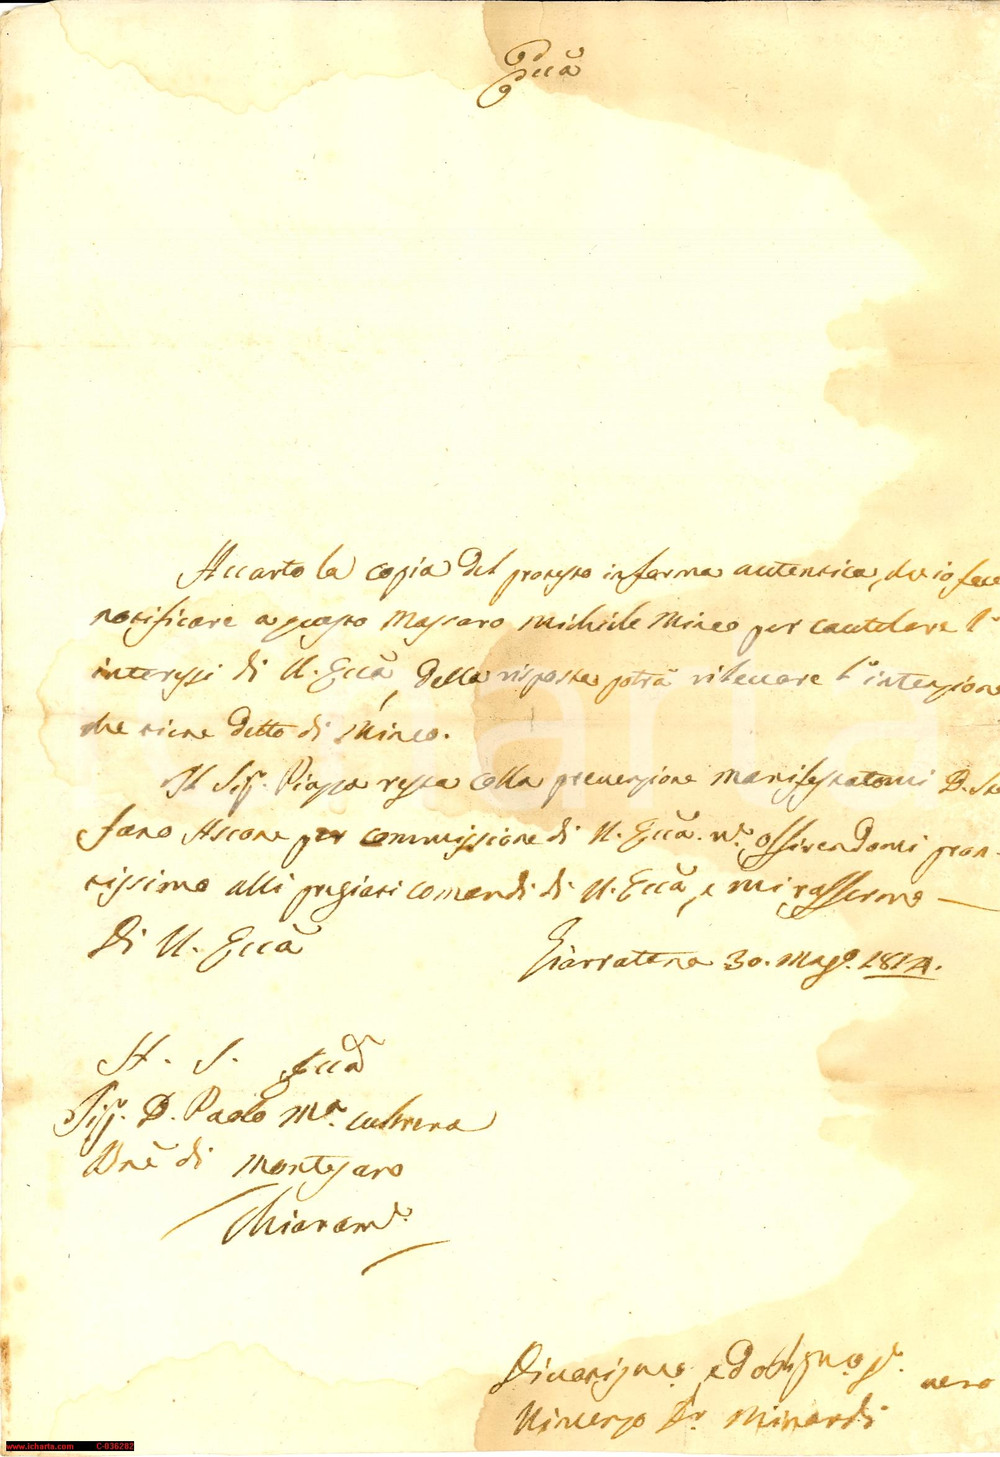 Eccã
Accarto la copia del protesto in forma autentica, che io feci
notificare a questo Massaro Michiele Mineo per cautelare l'
interessi di V. Eccã, della risposta potrà rilevare l'intenzione
che tiene detto di Mineo.
Il Sig.r Piazza resta colla prevenzione manifestatami D. Ste
fano Ascone per commissione di V. Eccã. offirendomi pron-
tissimo alli pregiati comandi di V. Eccã, e mi rassermo
Di V. Eccã
Giarratana 30. Mag.o 1814.
A. S. Eccã
Sig.r D. Paolo M.a Cutrera
Bñe di Montejaro
Chiaram.e
Divotisimo, ed obl.mo
vero
Vincenzo D.r Minardi
www.icharta.com C-036282